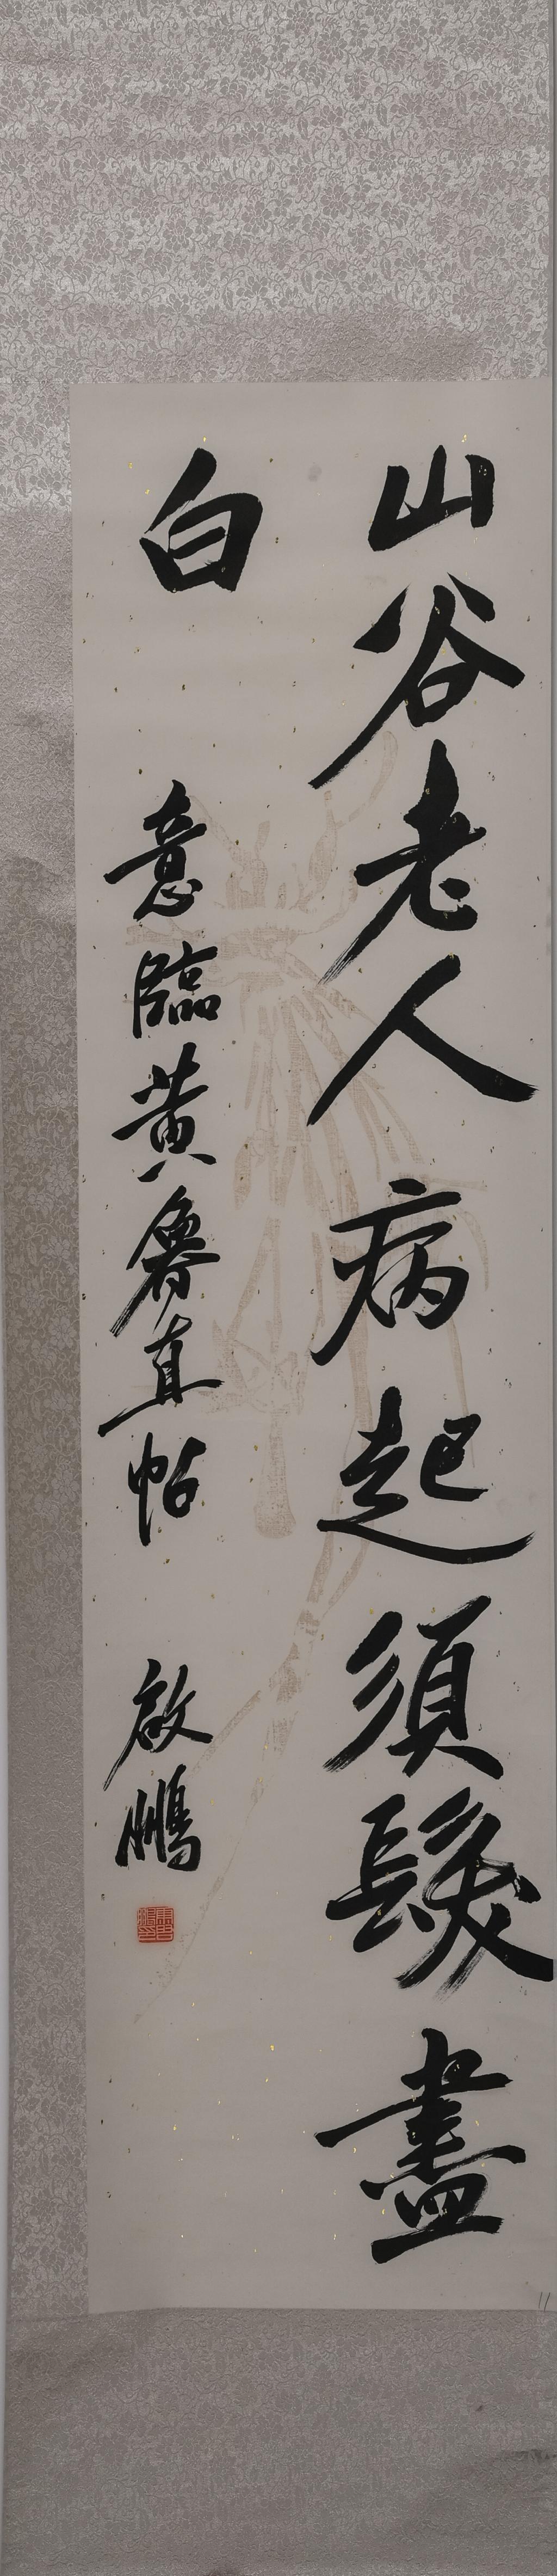 山谷老人病起須髮盡
白
意臨黃魯直帖
啟鵬